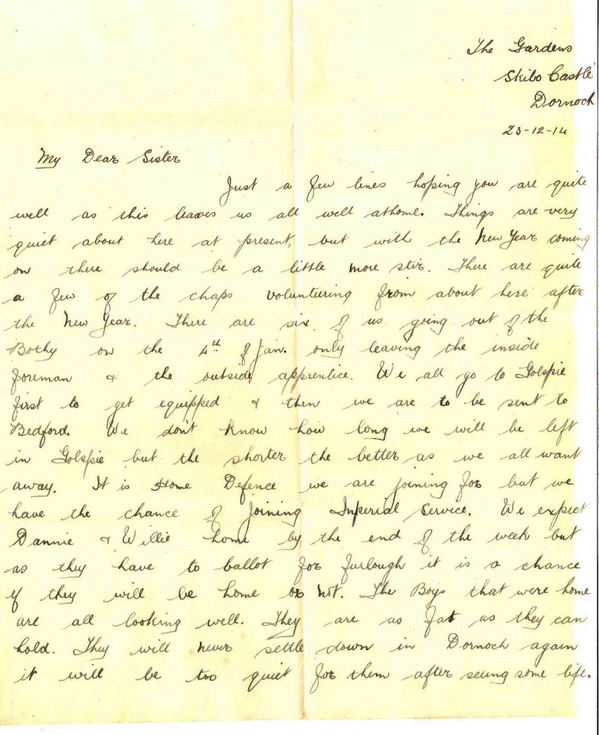 The Gardens
Skibo Castle
Dornoch
23-12-14
My Dear Sister
Just a few lines hoping you are quite
well as this leaves us all well athome. Things are very
quiet about here at present, but with the New Year coming
on there should be a little more stir. There are quite
a few of the chaps voluntiring from about here after
the New Year. There are six of us going out of the
Bothy on the 4th of Jan. only leaving the inside
foreman & the outside apprentice. We all go to Golspie
first to get equipped & then we are to be sent to
Bedford. We don't know how long we will be left
in Golspie but the shorter the better as we all want
away. It is Home Defence we are joining for but we
have the chance of joining Imperial Service. We expect
Dannie & Willie home by the end of the week but
as they have to ballot for furlough it is a chance
if they will be home or not. The Boys that were home
are all looking well. They are as fat as they can
hold. They will never settle down in Dornoch again
it will be too quiet for them after seeing some life.